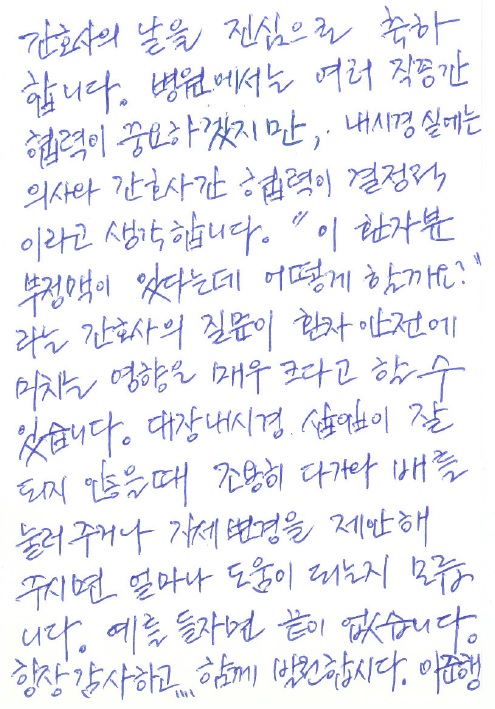 간호사의 날을 진심으로 축하
합니다. 병원에서는 여러 직종간
협력이 중요하겠지만, 내시경실에는
의사와 간호사간 협력이 결정적
이라고 생각합니다. "이 환자분
부정맥이 있다는데 어떻게 할까요?"
라는 간호사의 질문이 환자 안전에
미치는 영향은 매우 크다고 할 수
있습니다. 대장내시경 삽입이 잘
되지 않을때 조용히 다가와 배를
눌러주거나 자세변경을 제안해
주시면 얼마나 도움이 되는지 모릅
니다. 예를 들자면 끝이 없습니다.
항상 감사하고,,,, 함께 발전합시다. 이준행